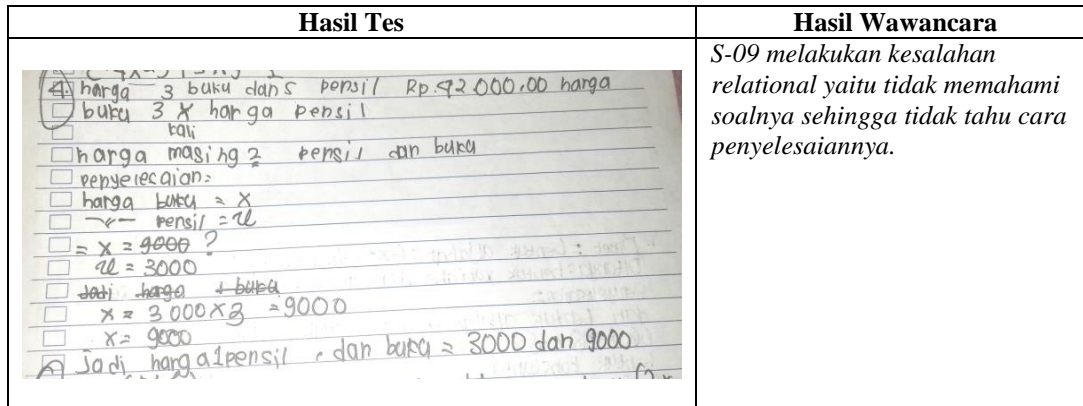 Hasil Tes
Hasil Wawancara
4. harga 3 buku dan 5 pensil Rp.42.000,00 harga
buku 3 X harga pensil
kali
harga masing2 pensil dan buku
penyelesaian:
harga buku = x
pensil = u
= x = 9000 ?
u = 3000
Jadi harga 1 buku
x = 3000 x 3 = 9000
x = 9000
Jadi harga 1 pensil, dan buku = 3000 dan 9000
S-09 melakukan kesalahan
relational yaitu tidak memahami
soalnya sehingga tidak tahu cara
penyelesaiannya.